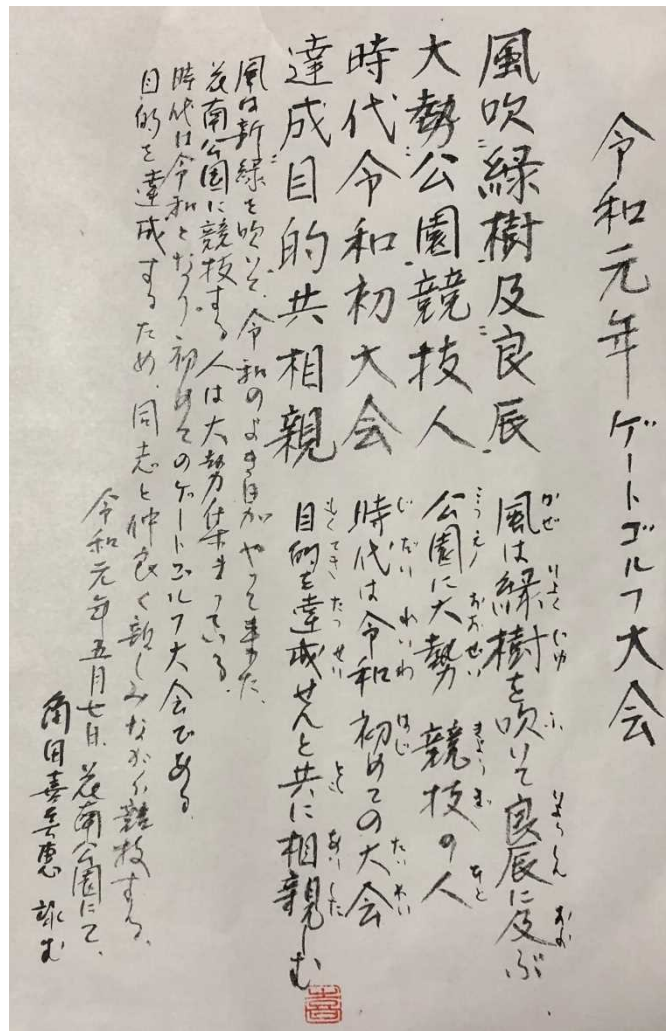 令和元年 ゲートゴルフ大会
風吹緑樹及良辰
大勢公園競技人
時代令和初大会
達成目的共相親
風は緑樹を吹いて良辰に及ぶ
公園に大勢 競技の人
時代は令和初めての大会
目的を達成せんと共に相親しむ
風は新緑を吹いて、令和のよき日がやって来た。
花南公園に競技する人は大勢集まっている。
時代は令和となり初めてのゲートゴルフ大会である。
目的を達成するため、同志と仲良く親しみながら競技する。
令和元年五月七日、花南公園にて、
角田喜 恵 詠む